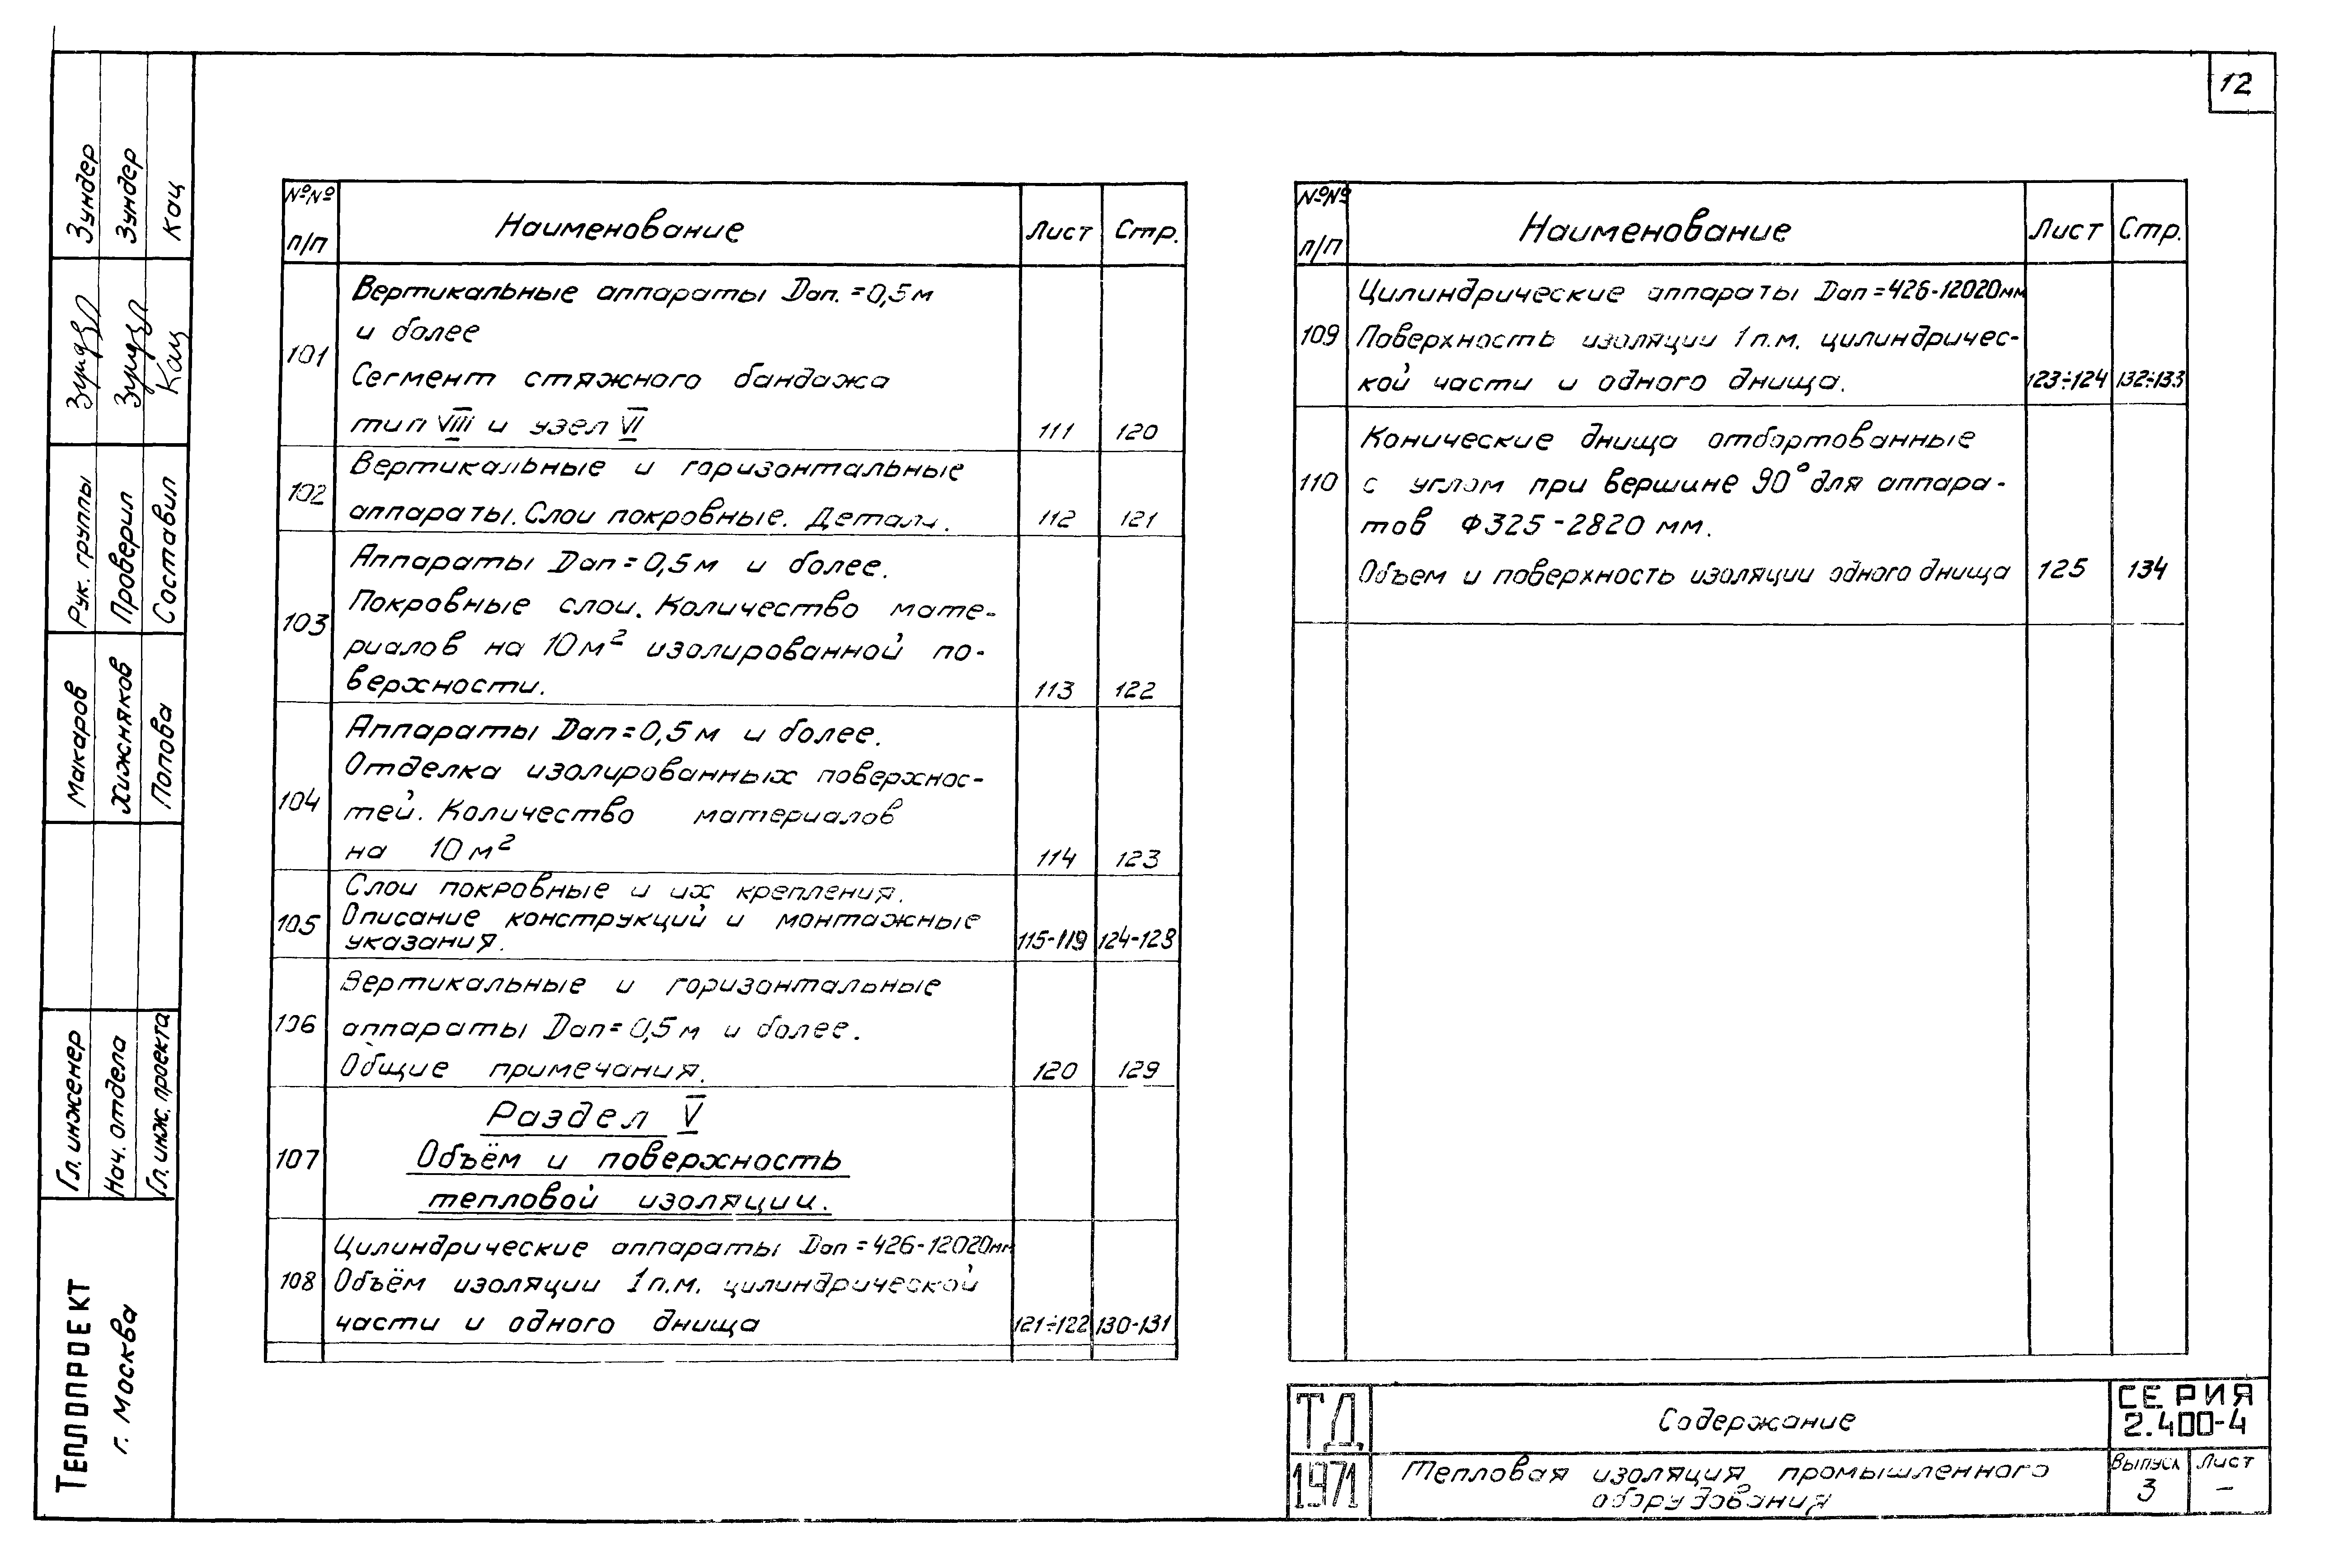 12
№№ п/п Наименование Лист Стр.
101
Вертикальные аппараты Dап.=0,5м
и более
Сегмент стяжного бандажа
тип VIII и узел VI 111 120
102
Вертикальные и горизонтальные
аппараты. Слои покровные. Детали. 112 121
103
Аппараты Dап=0,5м и более.
Покровные слои. Количество мате-
риалов на 10м² изолированной по-
верхности. 113 122
104
Аппараты Dап=0,5м и более.
Отделка изолированных поверхнос-
тей. Количество материалов
на 10м² 114 123
105
Слои покровные и их крепления.
Описание конструкций и монтажные
указания. 115-119 124-128
106
Вертикальные и горизонтальные
аппараты Dап=0,5м и более.
Общие примечания. 120 129
107
Раздел V
Объём и поверхность
тепловой изоляции.
108
Цилиндрические аппараты Dап=426-12020мм
Объём изоляции 1п.м. цилиндрической
части и одного днища 121÷122 130-131
№№ п/п Наименование Лист Стр.
109
Цилиндрические аппараты Dап=426-12020мм
Поверхность изоляции 1п.м. цилиндричес-
кой части и одного днища. 123÷124 132÷133
110
Конические днища отбортованные
с углом при вершине 90° для аппара-
тов Ф325-2820 мм.
Объем и поверхность изоляции одного днища 125 134
ТД
1971
Содержание
Тепловая изоляция промышленного
оборудования
СЕРИЯ
2.400-4
Выпуск
3
Лист
–
ТЕПЛОПРОЕКТ
г. Москва
Гл. инженер Макаров
Нач. отдела Хижняков
Гл. инж. проекта Попова
Рук. группы Зундер
Проверил Зундер
Составил Кац Кац